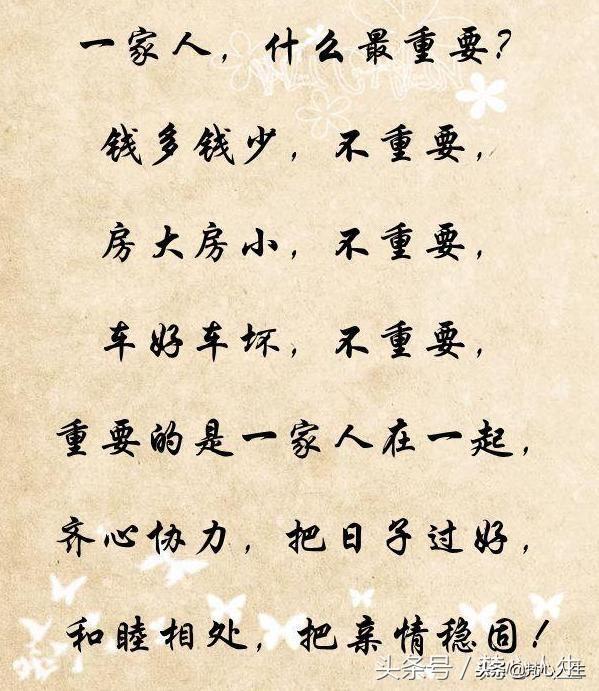 一家人，什么最重要？
钱多钱少，不重要，
房大房小，不重要，
车好车坏，不重要，
重要的是一家人在一起，
齐心协力，把日子过好，
和睦相处，把亲情稳固！
头条号／
头条@